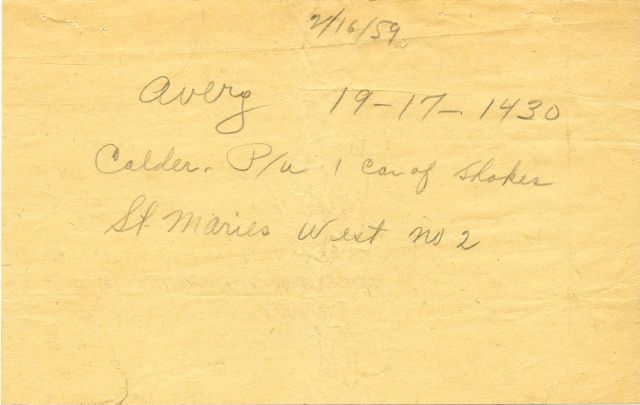 2/16/59
Avery 19-17-1430
Calder. P/u 1 car of shakes
St Maries West no 2